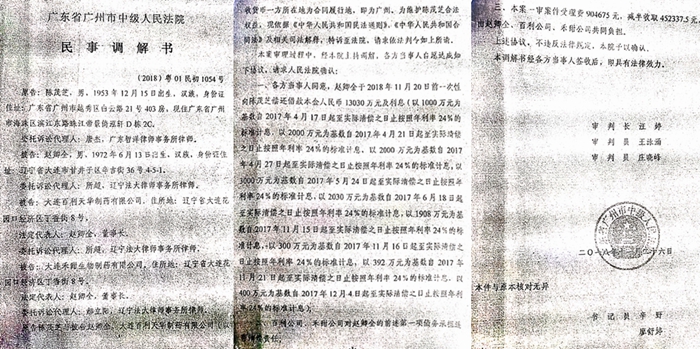 广东省广州市中级人民法院
民事调解书
（2018）粤01民初1054号
原告：陈茂芝，男，1953年12月15日出生，汉族，身份证住
址：广东省广州市越秀区白云路21号403房，现住广东省广州
市海珠区滨江东路珠江帝景D栋2C。
委托诉讼代理人：康杰，广东智洋律师事务所律师。
被告：赵卿全，男，1972年6月13日出生，汉族，身份证住
址：辽宁省大连市甘井子区36号4-5-1。
委托诉讼代理人：所超，辽宁法大律师事务所律师。
被告：大连百利天华制药有限公司，住所地：辽宁省大连花
园口经济区丁香街8号。
法定代表人：赵卿全，董事长。
委托诉讼代理人：所超，辽宁法大律师事务所律师。
被告：大连生物制药有限公司，住所地：辽宁省大连花
园口经济区丁香街8号。
法定代表人：赵卿全，董事长。
委托诉讼代理人：邰立阳，辽宁法大律师事务所律师。
原告陈茂芝被告赵卿全、大连百利天华制药有限公司（以
收货币一方所在地为合同履行地，即为广州，为维护陈茂芝合法
权益，现依据《中华人民共和国民法通则》、《中华人民共和国合
同法》及相关司法解释，特诉至法院，请求依法判令如上所请。
本案审理过程中，经本院主持调解，各方当事人自愿达成如
下协议，请求人民法院确认：
一、各方当事人同意，赵卿全于2018年11月20日前一次性
向陈茂芝偿还借款本金人民币13030万元及利息（以1000万元
为基数自2017年4月17日起至实际清偿之日止按照年利率24%
的标准计息，以2000万元为基数自2017年4月21日起至实际清
偿之日止按照年利率24%的标准计息，以2000万元为基数自
2017年4月27日起至实际清偿之日止按照年利率24%的标准计息，以
3000万元为基数自2017年5月24日起至实际清偿之日止按照年
利率24%的标准计息，以2030万元为基数自2017年6月18日
起至实际清偿之日止按照年利率24%的标准计息，以1908万元为基
数自2017年11月15日起至实际清偿之日止按照年利率24%的标
准计息，以300万元为基数自2017年11月16日起至实际清偿之
日止按照年利率24%的标准计息，以392万元为基数自2017年
11月21日起至实际清偿之日止按照年利率24%的标准计息，以
400万元为基数自2017年12月4日起至实际清偿之日止按照年利
率24%的标准计息）；
百利公司、公司对赵卿全的前述第一项债务承担连
带清偿责任。
二、本案一审案件受理费904675元，减半收取452337.5元，
由赵卿全、百利公司、公司共同负担。
上述协议，不违反法律规定，本院予以确认。
本调解书经各方当事人签收后，即具有法律效力。
审判长 汪婷
审判员 王泳涌
审判员 庄晓峰
二〇一八年月二十六日
本件与原本核对无异
书记员 辛野
廖舒婷